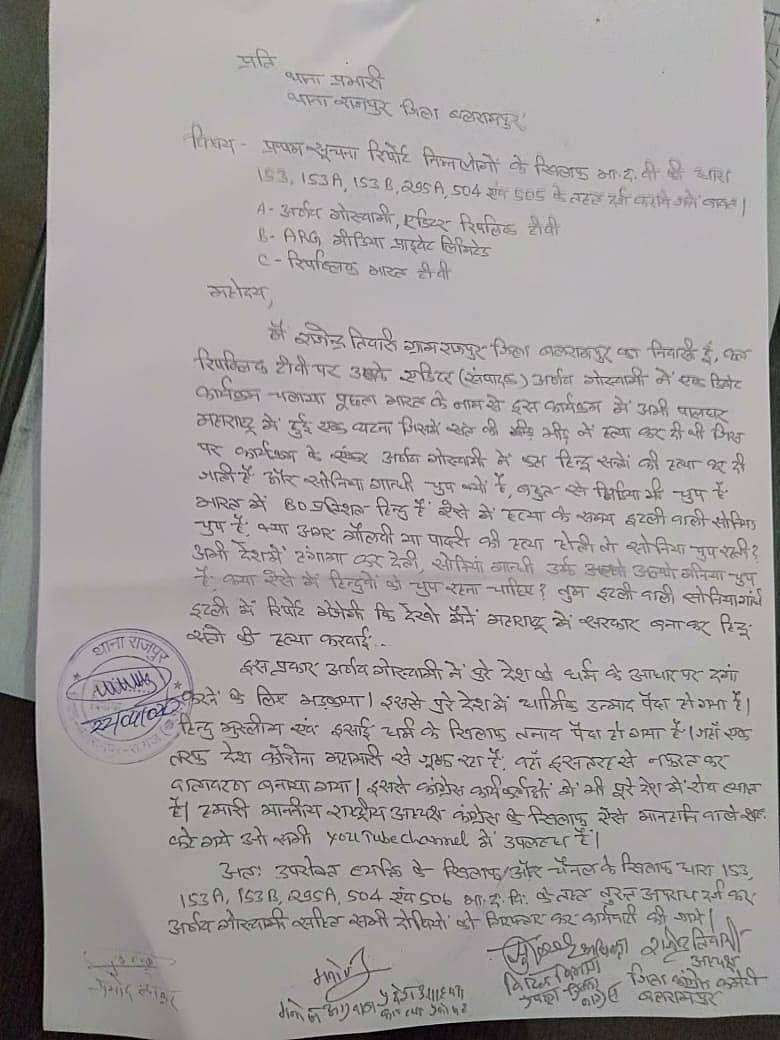 प्रति
थाना प्रभारी
थाना राजपुर जिला बलरामपुर
विषय - प्रथम सूचना रिपोर्ट निम्न लोगों के खिलाफ भा.द.वी की धारा
153, 153A, 153B, 295A, 504 एवं 505 के तहत दर्ज कराने बाबत।
A - अर्णव गोस्वामी, एडिटर रिपब्लिक टीवी
B - ARG मीडिया प्राइवेट लिमिटेड
C - रिपब्लिक भारत टीवी
महोदय,
मैं राजेन्द्र तिवारी ग्राम राजपुर जिला बलरामपुर का निवासी हूँ, कल
रिपब्लिक टीवी पर उसके एडिटर (संपादक) अर्णव गोस्वामी ने एक डिबेट
कार्यक्रम चलाया पूछता भारत के नाम से इस कार्यक्रम में अभी पालघर
महाराष्ट्र में हुई एक घटना जिसमें संत की भीड़ ने हत्या कर दी थी जिस
पर कार्यक्रम के एंकर अर्णव गोस्वामी ने हिन्दू सन्तों की हत्या कर दी
जाती है और सोनिया गान्धी चुप क्यों है, बहुत से मिडिया भी चुप है
भारत में 80 प्रतिशत हिन्दू है ऐसे में हत्या के समय इटली वाली सोनिया
चुप है, क्या अगर मौलवी या पादरी की हत्या होती तो सोनिया चुप रहती?
अभी देश में हंगामा कर देती, सोनिया गान्धी उर्फ चुप
है, क्या ऐसे में हिन्दुओं को चुप रहना चाहिए? तुम इटली वाली सोनिया गांधी
इटली में रिपोर्ट भेजेगी कि देखो मैंने महाराष्ट्र में सरकार बनाकर हिन्दू
संतो की हत्या करवाई...
इस प्रकार अर्णव गोस्वामी ने पुरे देश को धर्म के आधार पर दंगा
करने के लिए भड़काया। इससे पुरे देश में धार्मिक उन्माद पैदा हो गया है।
हिन्दू मुस्लीम एवं इसाई धर्म के खिलाफ तनाव पैदा हो गया है। जहाँ एक
तरफ देश कोरोना महामारी से जूझ रहा है, वहाँ इस तरह से नफरत का
वातावरण बनाया गया। इससे कांग्रेस कार्यकर्ताओं में भी पुरे देश में रोष व्याप्त
है। हमारी माननीय राष्ट्रीय अध्यक्ष कांग्रेस के खिलाफ ऐसे मानहानि वाले शब्द
कहे गये जो सभी YouTube channel में उपलब्ध है।
अतः उपरोक्त व्यक्ति के खिलाफ और चैनल के खिलाफ धारा 153,
153A, 153B, 295A, 504 एवं 506 भा.द.वि. के तहत तुरन्त अपराध दर्ज कर
अर्णव गोस्वामी सहित सभी दोषियों को गिरफ्तार कर कार्यवाही की जाये।
थाना राजपुर
राजेन्द्र तिवारी
अध्यक्ष
जिला कांग्रेस कमेटी
बलरामपुर
मनोज
मनोज अग्रवाल